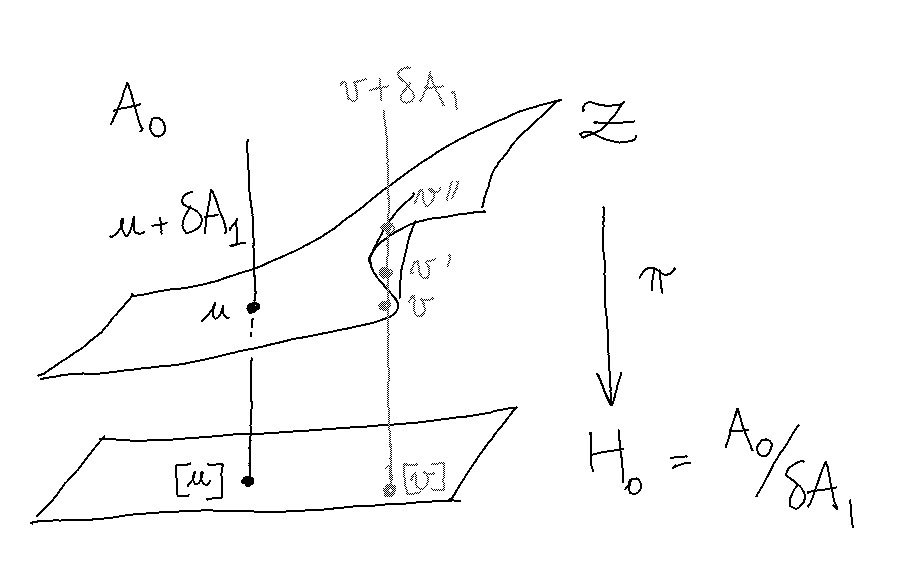 A₀
v + δA₁
Z
v''
u + δA₁
v'
π
u
v
[u]
[v]
H₀ = A₀/δA₁